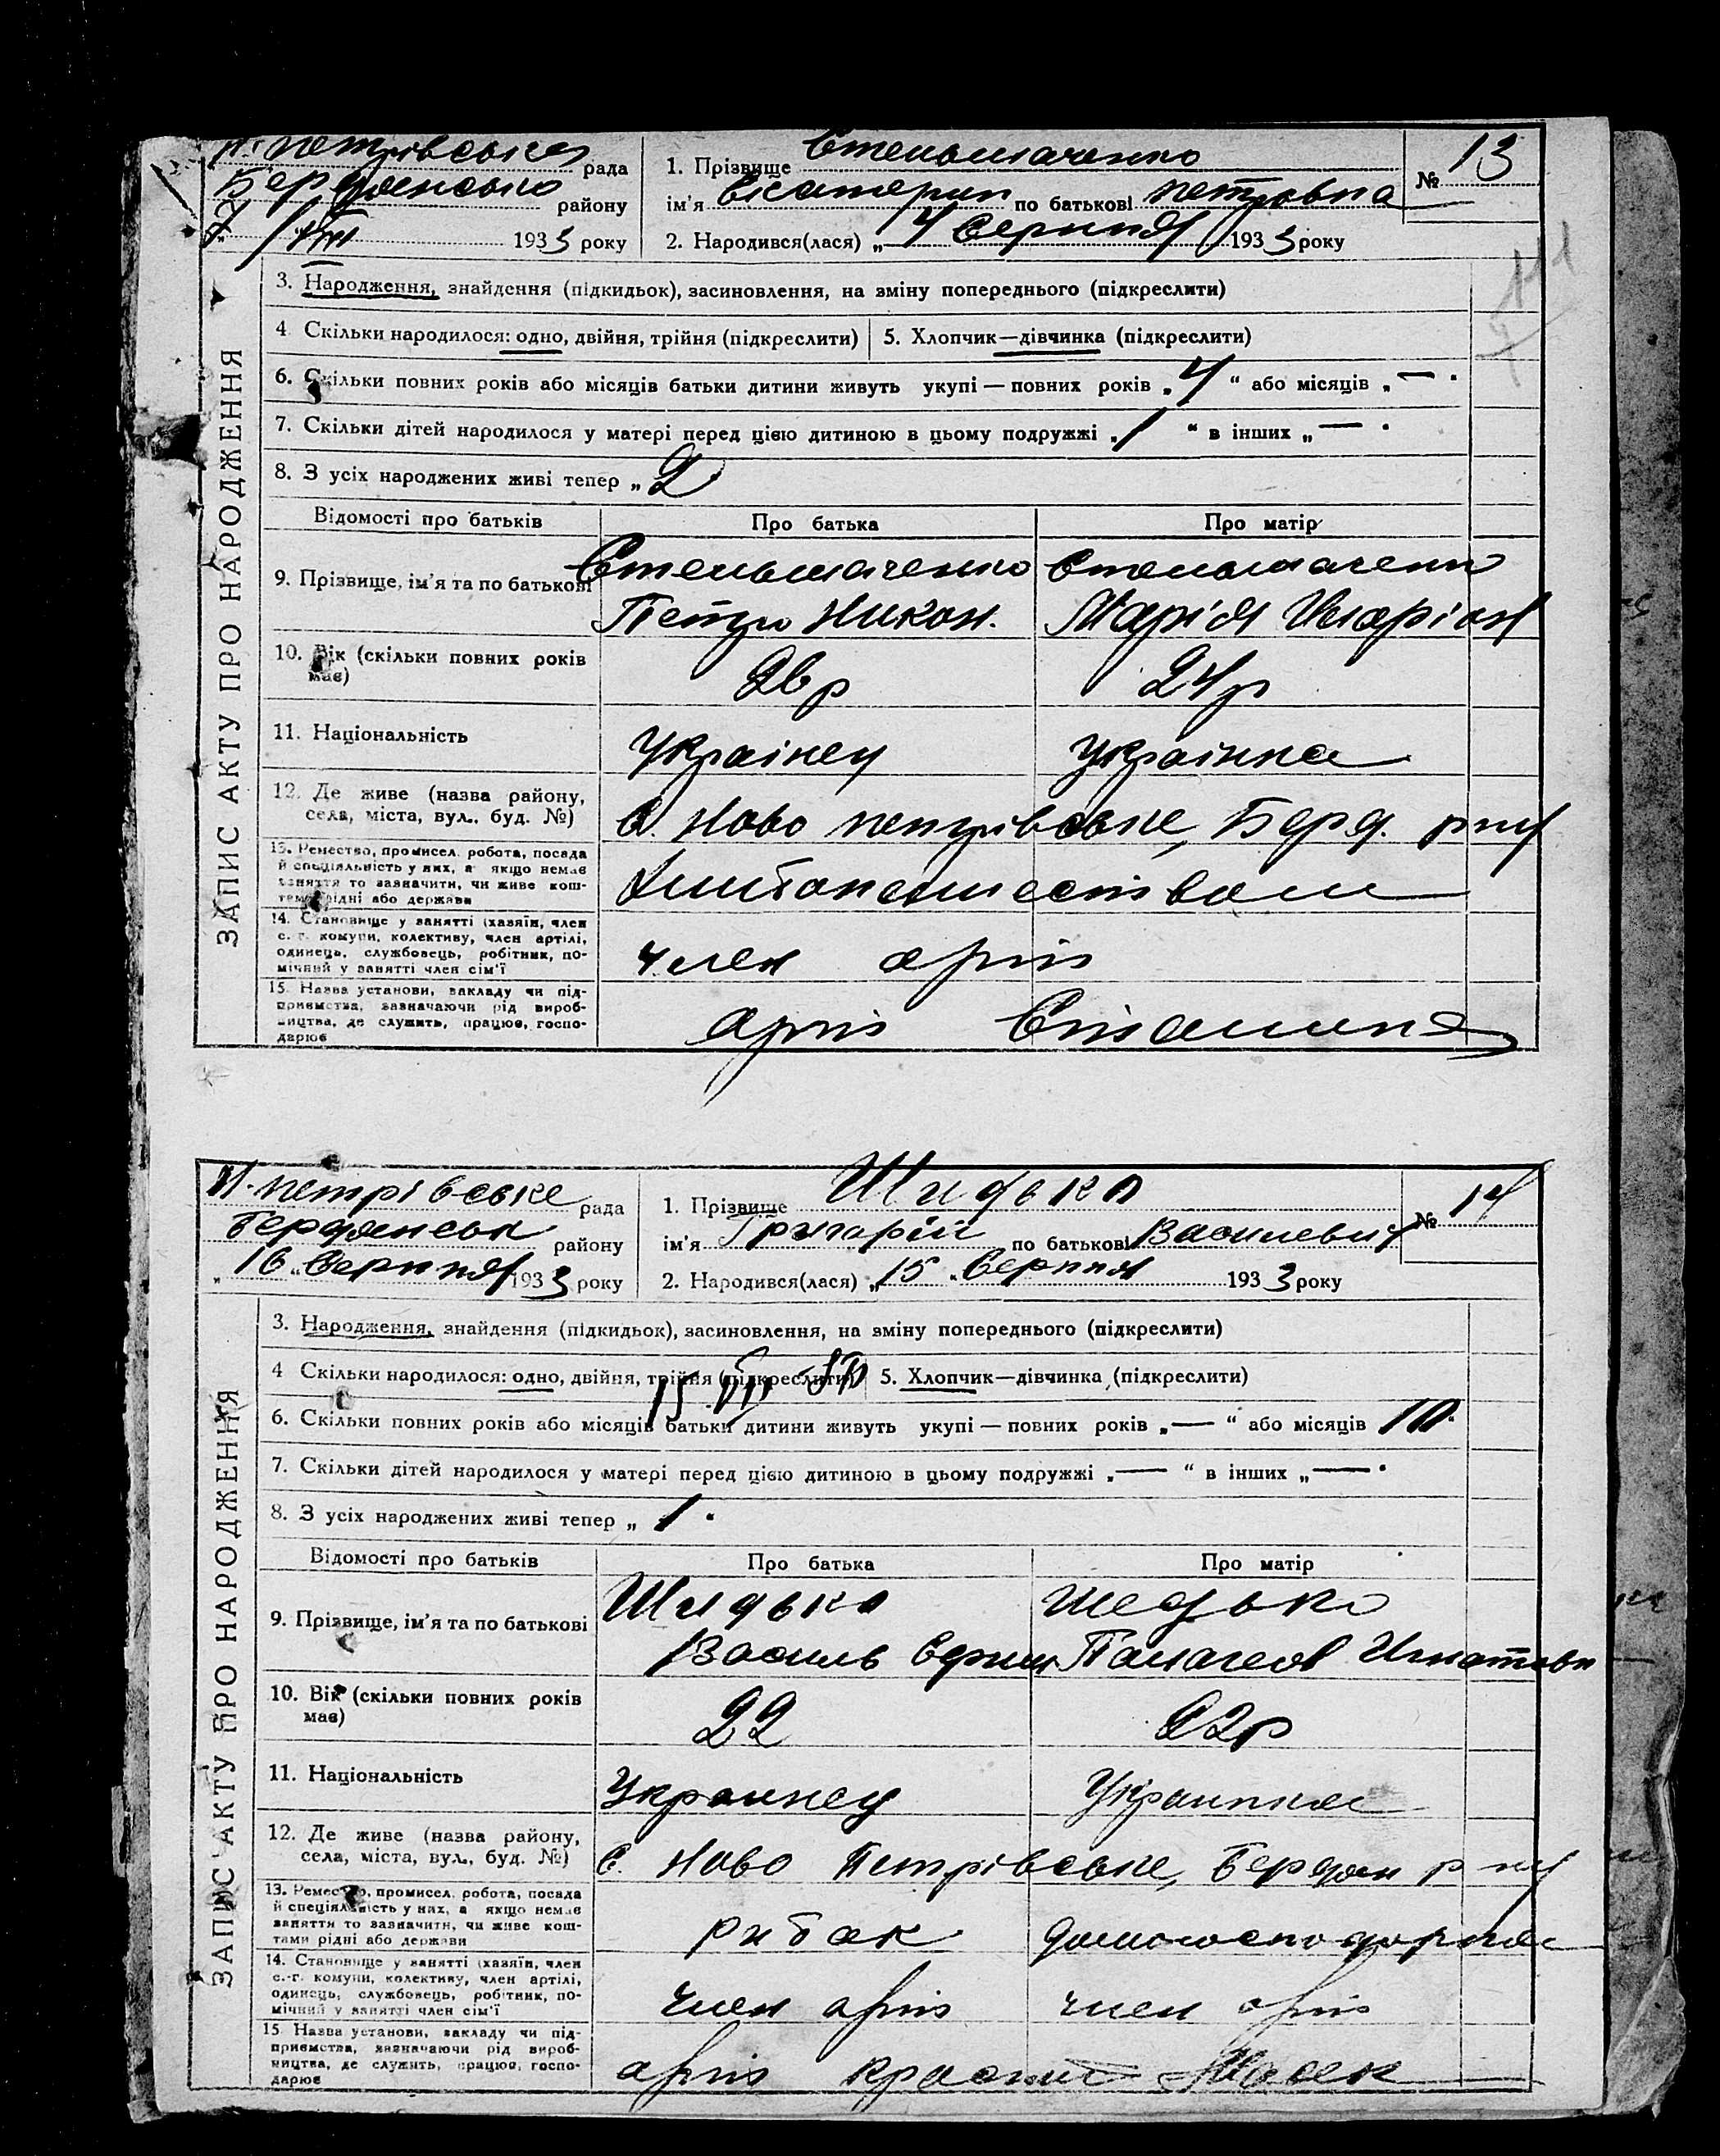 Н. петрівська рада
Бердянсько району
7/VIII 1933 року
1. Прізвище Стельмаченко
ім'я Екатерин по батькові петровна
2. Народився(лася) „4 Серпня 1933 року
№ 13
3. Народження, знайдення (підкидьок), засиновлення, на зміну попереднього (підкреслити)
4 Скільки народилося: одно, двійня, трійня (підкреслити) 5. Хлопчик—дівчинка (підкреслити)
6. Скільки повних років або місяців батьки дитини живуть укупі — повних років „4“ або місяців „—“
7. Скільки дітей народилося у матері перед цією дитиною в цьому подружжі „1“ в інших „—“
8. З усіх народжених живі тепер „2
ЗАПИС АКТУ ПРО НАРОДЖЕННЯ
Відомості про батьків Про батька Про матір
9. Прізвище, ім'я та по батькові Стельмаченко Стельмаченко
Петро Никон. Марія Іларіон
10. Вік (скільки повних років має) 26р 24р
11. Національність Українец Українка
12. Де живе (назва району,
села, міста, вул., буд. №) с. Ново петрівське, Берд. рну
13. Ремество, промисел, робота, посада
й спеціяльність у них, а якщо немає
заняття то зазначити, чи живе кош-
тами рідні або держави
14. Становище у занятті (хазяїн, член
с.-г. комуни, колективу, член артілі,
одинець, службовець, робітник, по-
мічний у занятті член сім'ї член артіл
15. Назва установи, закладу чи під-
приємства, зазначаючи рід вироб-
ництва, де служить, працює, госпо-
дарює артіл Сталина
Н. петрівське рада
Бердянськ району
„16„ Серпня 1933 року
1. Прізвище Шидько
ім'я Григорій по батькові Василевич
2. Народився(лася) „15„ Серпня 1933 року
№ 14
3. Народження, знайдення (підкидьок), засиновлення, на зміну попереднього (підкреслити)
4 Скільки народилося: одно, двійня, трійня (підкреслити) 5. Хлопчик—дівчинка (підкреслити)
15 VIII
6. Скільки повних років або місяців батьки дитини живуть укупі — повних років „—“ або місяців 10
7. Скільки дітей народилося у матері перед цією дитиною в цьому подружжі „—“ в інших „—“
8. З усіх народжених живі тепер „1“
ЗАПИС АКТУ ПРО НАРОДЖЕННЯ
Відомості про батьків Про батька Про матір
9. Прізвище, ім'я та по батькові Шидько Шедько
Василь Ефим Палагея Игнатовн
10. Вік (скільки повних років має) 22 22р
11. Національність Украинец Украинка
12. Де живе (назва району,
села, міста, вул., буд. №) с. Ново Петрівське, Бердян р ну
13. Ремество, промисел, робота, посада
й спеціяльність у них, а якщо немає
заняття то зазначити, чи живе кош-
тами рідні або держави рибак домогосподарка
14. Становище у занятті (хазяїн, член
с.-г. комуни, колективу, член артілі,
одинець, службовець, робітник, по-
мічний у занятті член сім'ї член артіл член артіл
15. Назва установи, закладу чи під-
приємства, зазначаючи рід вироб-
ництва, де служить, працює, госпо-
дарює артіл Красний Маяк